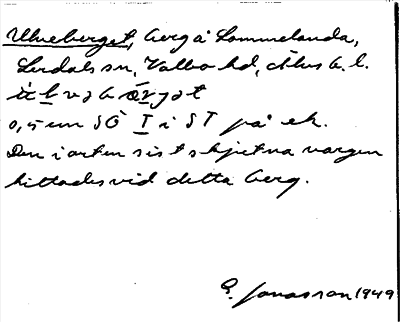 Ulveberget, berg å Lammelanda,
Lerdals sn, Valbo hd, Älvs b. l.
0,5 cm SÖ I i ST på ek.
Den i orten sist skjutna vargen
hittades vid detta berg.
E. Jonasson 1949